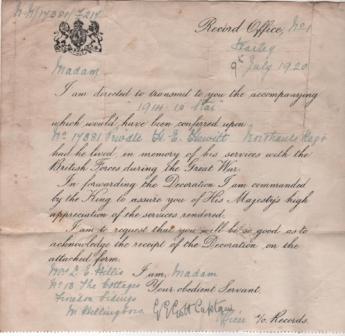 N-N/17381/F214
Record Office, No 1
Warley
9th July 1920
Madam
I am directed to transmit to you the accompanying
1914-15 Star
which would have been conferred upon
No 17381 Private H. E. Hewitt Northants Regt
had he lived, in memory of his services with the
British Forces during the Great War.
In forwarding the Decoration I am commanded
by the King to assure you of His Majesty's high
appreciation of the services rendered.
I am to request that you will be so good as to
acknowledge the receipt of the Decoration on the
attached form.
Mrs L E I am, Madam
No 18 The Cottages Your obedient Servant,
Finedon Sidings
Nr Wellingboro Captain
Officer i/c Records.